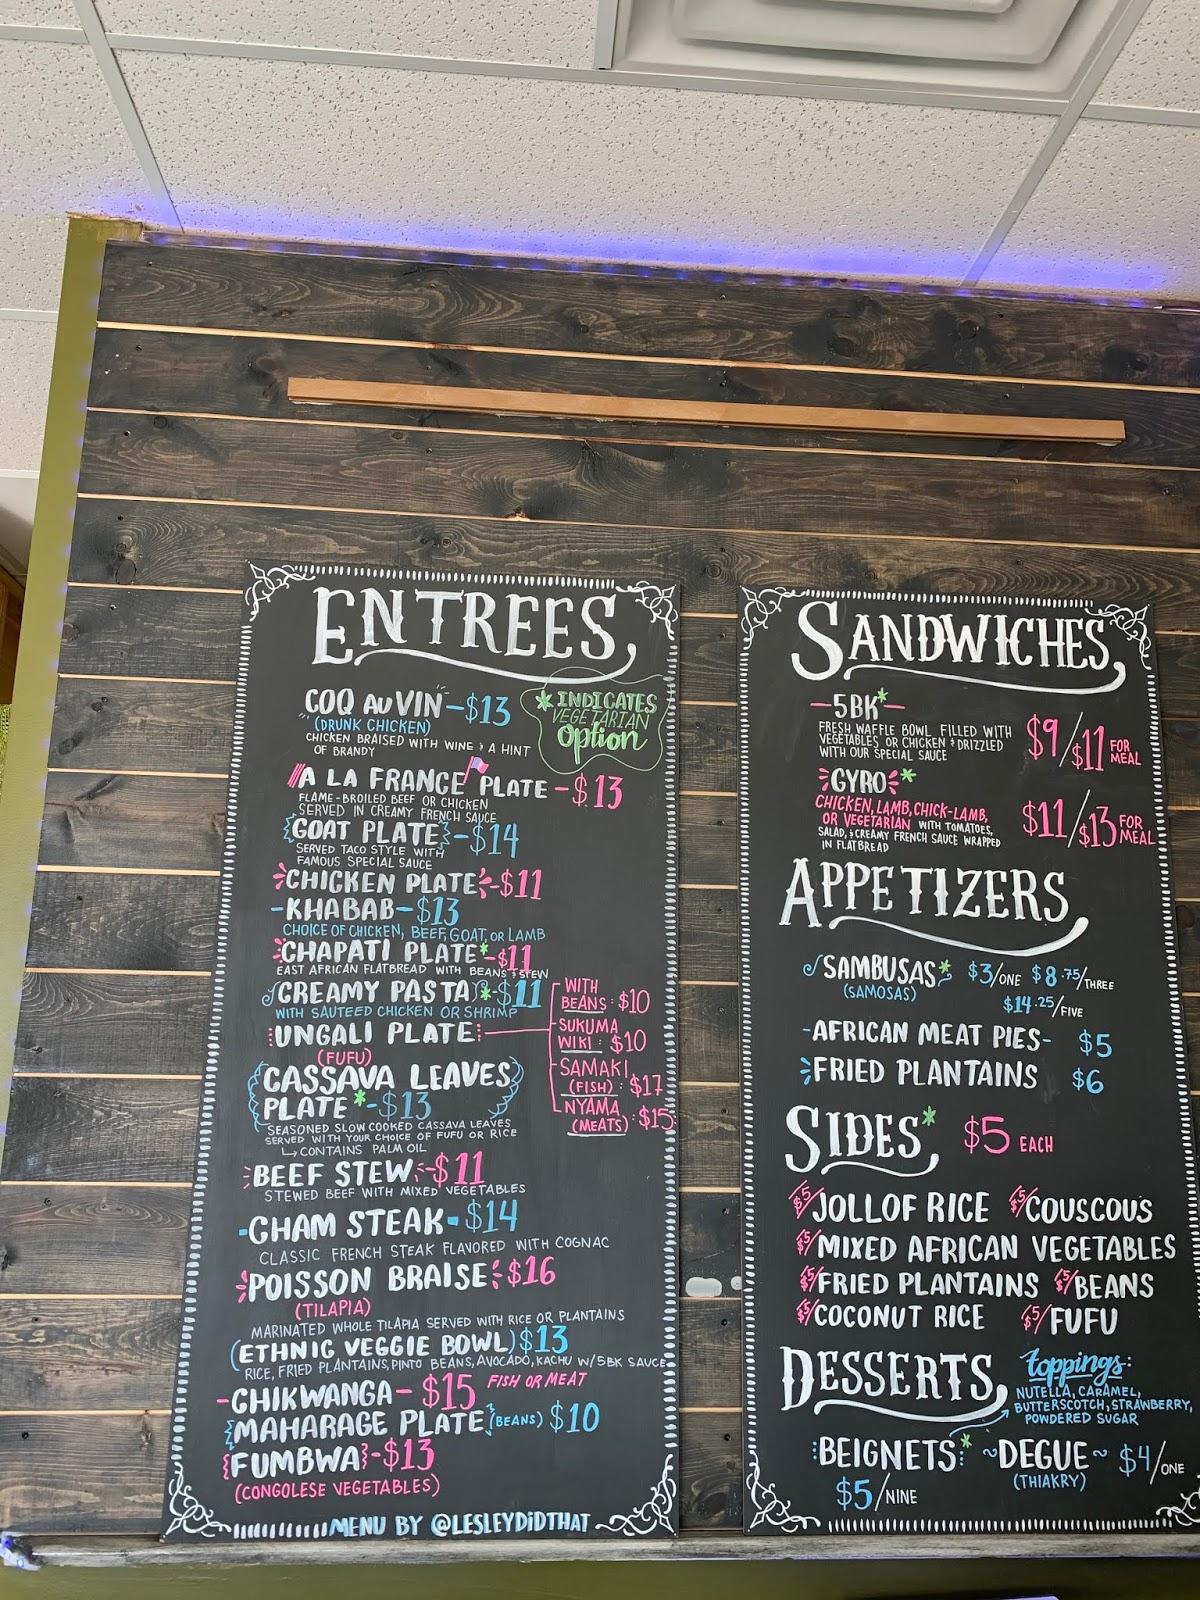 ENTREES
* INDICATES
VEGETARIAN
option
COQ AU VIN - $13
(DRUNK CHICKEN)
CHICKEN BRAISED WITH WINE & A HINT
OF BRANDY
A LA FRANCE PLATE - $13
FLAME-BROILED BEEF OR CHICKEN
SERVED IN CREAMY FRENCH SAUCE
GOAT PLATE - $14
SERVED TACO STYLE WITH
FAMOUS SPECIAL SAUCE
CHICKEN PLATE - $11
- KHABAB - $13
CHOICE OF CHICKEN, BEEF, GOAT, OR LAMB
CHAPATI PLATE* - $11
EAST AFRICAN FLATBREAD WITH BEANS & STEW
CREAMY PASTA * - $11
WITH SAUTEED CHICKEN OR SHRIMP
UNGALI PLATE
(FUFU)
WITH
BEANS: $10
SUKUMA
WIKI: $10
SAMAKI
(FISH): $17
NYAMA
(MEATS): $15
CASSAVA LEAVES
PLATE * - $13
SEASONED SLOW COOKED CASSAVA LEAVES
SERVED WITH YOUR CHOICE OF FUFU OR RICE
→ CONTAINS PALM OIL
BEEF STEW - $11
STEWED BEEF WITH MIXED VEGETABLES
- CHAM STEAK - $14
CLASSIC FRENCH STEAK FLAVORED WITH COGNAC
POISSON BRAISE $16
(TILAPIA)
MARINATED WHOLE TILAPIA SERVED WITH RICE OR PLANTAINS
(ETHNIC VEGGIE BOWL) $13
RICE, FRIED PLANTAINS, PINTO BEANS, AVOCADO, KACHU W/5BK SAUCE
- CHIKWANGA - $15 FISH OR MEAT
MAHARAGE PLATE (BEANS) $10
FUMBWA - $13
(CONGOLESE VEGETABLES)
MENU BY @LESLEYDIDTHAT
SANDWICHES
- 5BK* -
FRESH WAFFLE BOWL FILLED WITH
VEGETABLES OR CHICKEN & DRIZZLED
WITH OUR SPECIAL SAUCE
$9/$11 FOR
MEAL
GYRO *
CHICKEN, LAMB, CHICK-LAMB,
OR VEGETARIAN WITH TOMATOES,
SALAD, & CREAMY FRENCH SAUCE WRAPPED
IN FLATBREAD
$11/$13 FOR
MEAL
APPETIZERS
SAMBUSAS * $3/ONE $8.75/THREE
(SAMOSAS)
$14.25/FIVE
- AFRICAN MEAT PIES - $5
FRIED PLANTAINS $6
SIDES* $5 EACH
$5/JOLLOF RICE $5/COUSCOUS
$5/MIXED AFRICAN VEGETABLES
$5/FRIED PLANTAINS $5/BEANS
$5/COCONUT RICE $5/FUFU
DESSERTS
toppings:
NUTELLA, CARAMEL,
BUTTERSCOTCH, STRAWBERRY,
POWDERED SUGAR
BEIGNETS * ~DEGUE~ $4/ONE
(THIAKRY)
$5/NINE